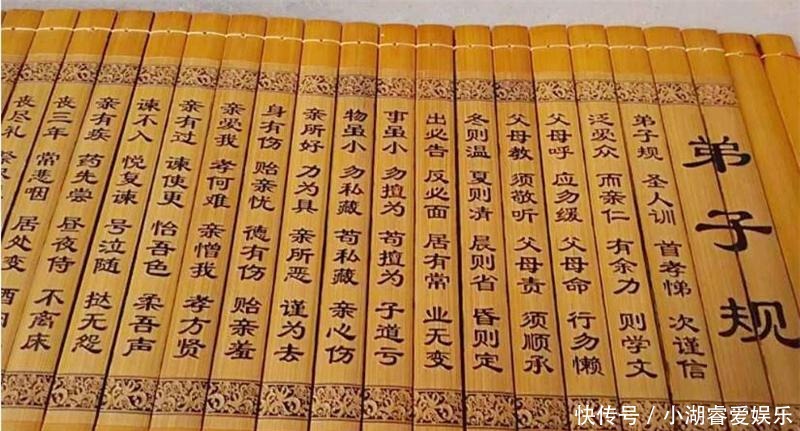 弟子规
弟子规 圣人训 首孝悌 次谨信
泛爱众 而亲仁 有余力 则学文
父母呼 应勿缓 父母命 行勿懒
父母教 须敬听 父母责 须顺承
冬则温 夏则清 晨则省 昏则定
出必告 反必面 居有常 业无变
事虽小 勿擅为 苟擅为 子道亏
物虽小 勿私藏 苟私藏 亲心伤
亲所好 力为具 亲所恶 谨为去
身有伤 贻亲忧 德有伤 贻亲羞
亲爱我 孝何难 亲憎我 孝方贤
亲有过 谏使更 怡吾色 柔吾声
谏不入 悦复谏 号泣随 挞无怨
亲有疾 药先尝 昼夜侍 不离床
丧三年 常悲咽 居处变 酒
丧尽礼
快传号 / 小湖睿爱娱乐